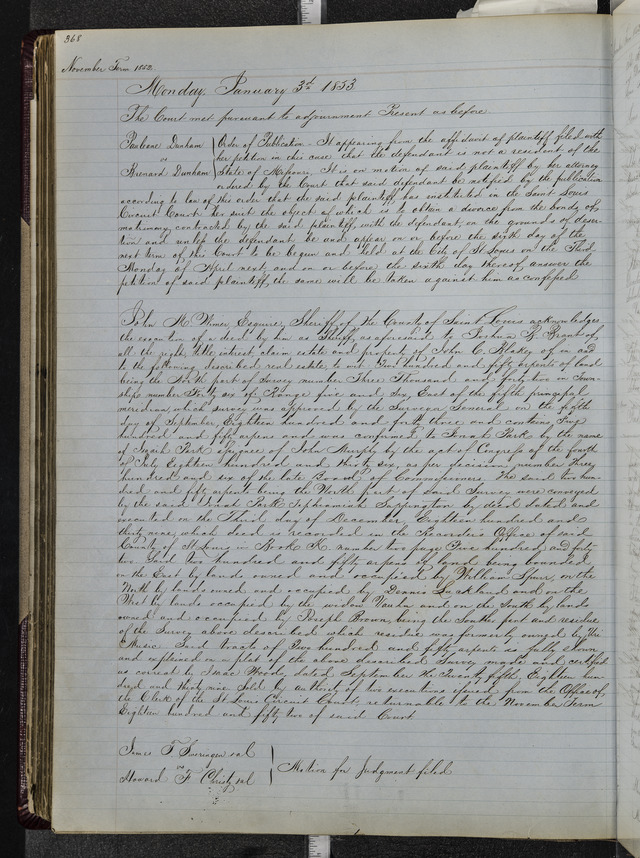 368
November Term 1852.
Monday January 3d 1853
The Court met pursuant to adjournment Present as before
Pauleene Dunham
vs
Brenard Dunham
Order of Publication. It appearing from the affidavit of plaintiff filed with
her petition in this case that the defendant is not a resident of the
State of Missouri, It is on motion of said plaintiff by her attorney
ordered by the Court that said defendant be notified by the publication
according to law of this order that the said plaintiff has instituted in the Saint Louis
Circuit Court her suit the object of which is to obtain a divorce from the bonds of
matrimony contracted by the said plaintiff with the defendant, on the grounds of deser-
tion and unless the defendant be and appear on or before the sixth day of the
next term of this Court to be begun and held at the City of St Louis on the Third
Monday of April next, and on or before the sixth day thereof, answer the
petition of said plaintiff, the same will be taken against him as confessed
John M. Wimer Esquire, Sheriff of the County of Saint Louis acknowledges
the execution of a deed by him as Sheriff as aforesaid to Joshua B. Brant of
all the right, title interest, claim estate and property of John C. Blakey of in and
to the following described real estate to wit Two hundred and fifty arpents of land
being the North part of Survey number Three Thousand and forty two in Town-
ships number Forty six of Range five and six, East of the fifth principal
meridian which survey was approved by the Surveyor General on the fifth
day of September, Eighteen hundred and forty three and contains Five
hundred and fifty arpens and was confirmed to Jonah Park by the name
of Noah Park assignee of John Murphy by the act of Congress of the fourth
of July Eighteen hundred and thirty six, as per decision number Three
hundred and six of the late Board of Commissioners The said two hun-
dred and fifty arpents being the North part of said Survey were conveyed
by the said Jonah Park Zephaniah Sappington by deed dated and
executed on the Third day of December, Eighteen hundred and
thirty nine, which deed is recorded in the Recorders Office of said
County of St Louis in Book K. number two page Five hundred and forty
two Said two hundred and fifty arpens of land being bounded
on the East by lands owned and occupied by William Spuer, on the
North by lands owned and occupied by Dennis Lackland and on the
West by lands occupied by the widow and on the South by lands
owned and occupied by Joseph Brown, being the South part and residue
of the Survey above described which residue was formerly owned by Uri
Music Said tract of Two hundred and fifty arpents is fully shown
and explained on a plat of the above described Survey made and certified
as correct by Isaac Woods, dated September the Twenty fifth Eighteen hun-
dred and thirty nine Sold by authority of two executions issued from the Office of
the Clerk of the St Louis Circuit Court, returnable to the November Term
Eighteen hundred and fifty two of said Court
James T. Sweringen et al
vs
Howard F Christy et al
Motion for Judgment filed